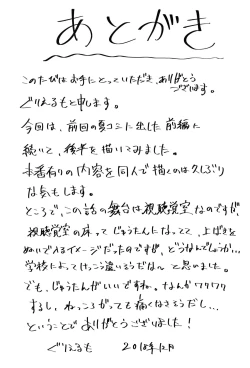 あとがき
このたびはお手にとっていただき、ありがとう
ございます。
ぐりえるもと申します。
今回は、前回の夏コミに出した前編に
続いて、後半を描いてみました。
本番有りの内容を同人で描くのは久しぶり
な気もします。
ところで、この話の舞台は視聴覚室なのですが、
視聴覚室の床ってじゅうたんになってて、上ばきを
ぬいで入るイメージだったのですが、どうなんでしょうか…
学校によってけっこう違いそうだな〜と思いました。
でも、じゅうたんがいいですね。なんかワクワク
するし、ねっころがっても痛くなさそうだし…
ということでありがとうございました！
ぐりえるも 2018年12月